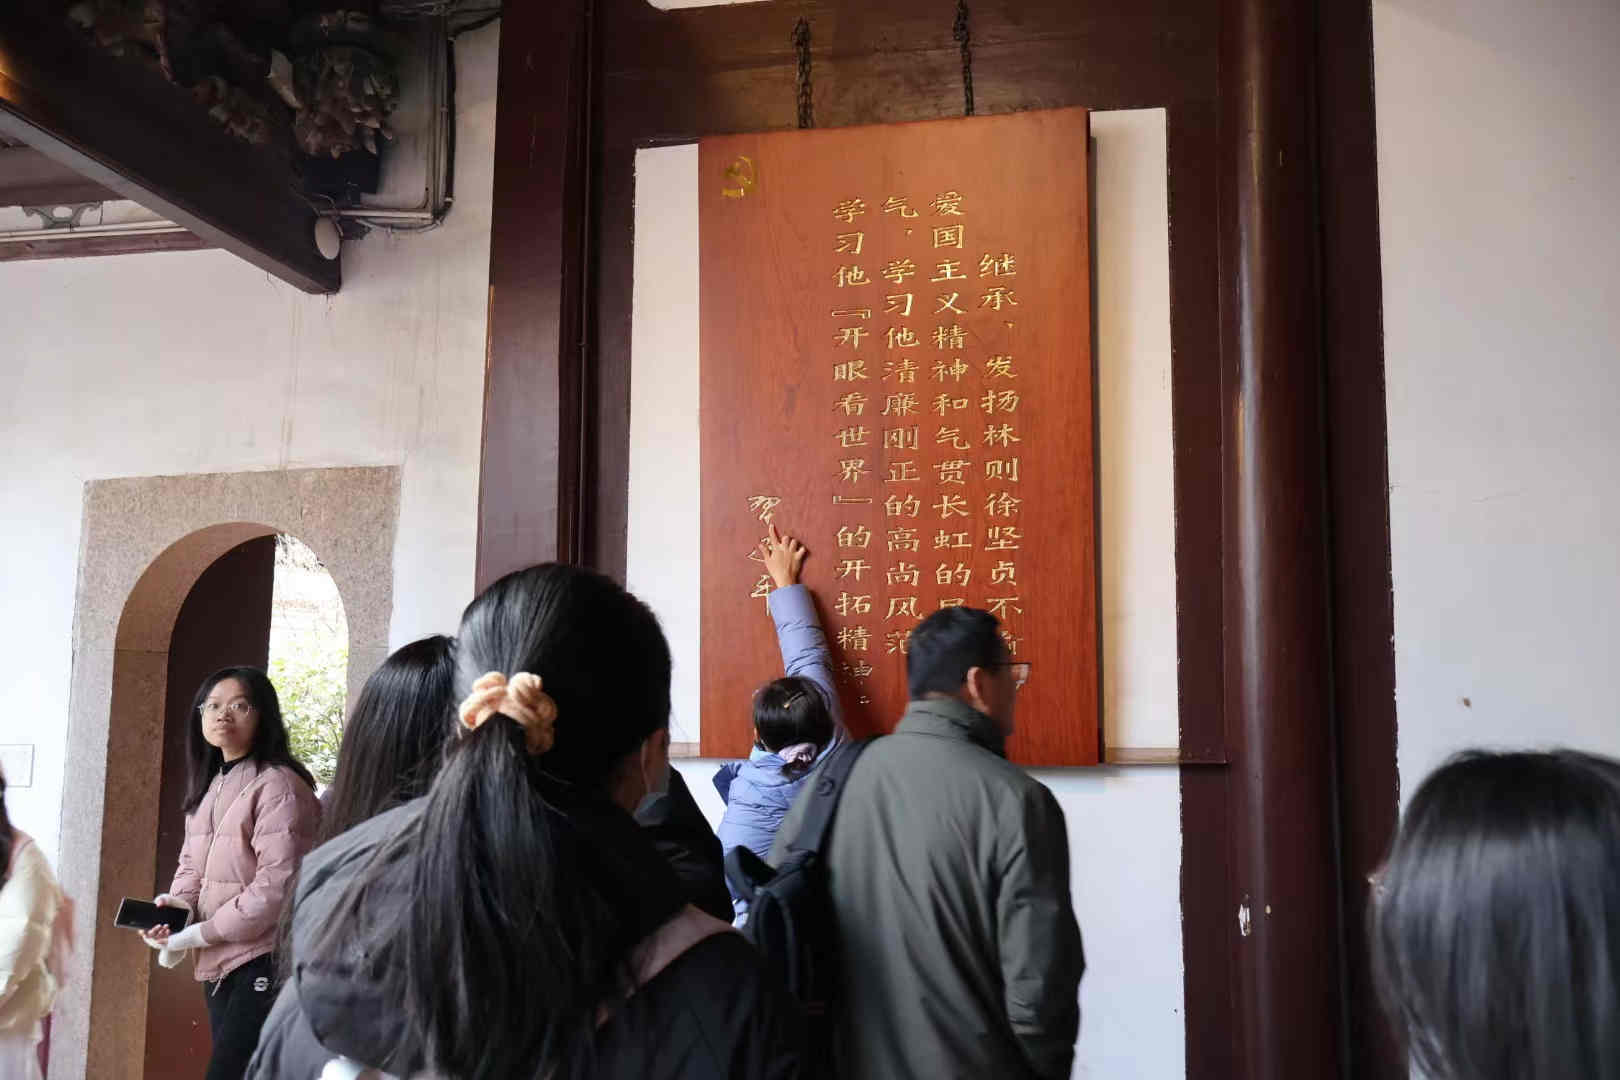 继承、发扬林则徐坚贞不
爱国主义精神和气贯长虹的民
气，学习他清廉刚正的高尚风范
学习他『开眼看世界』的开拓精神。
习近平